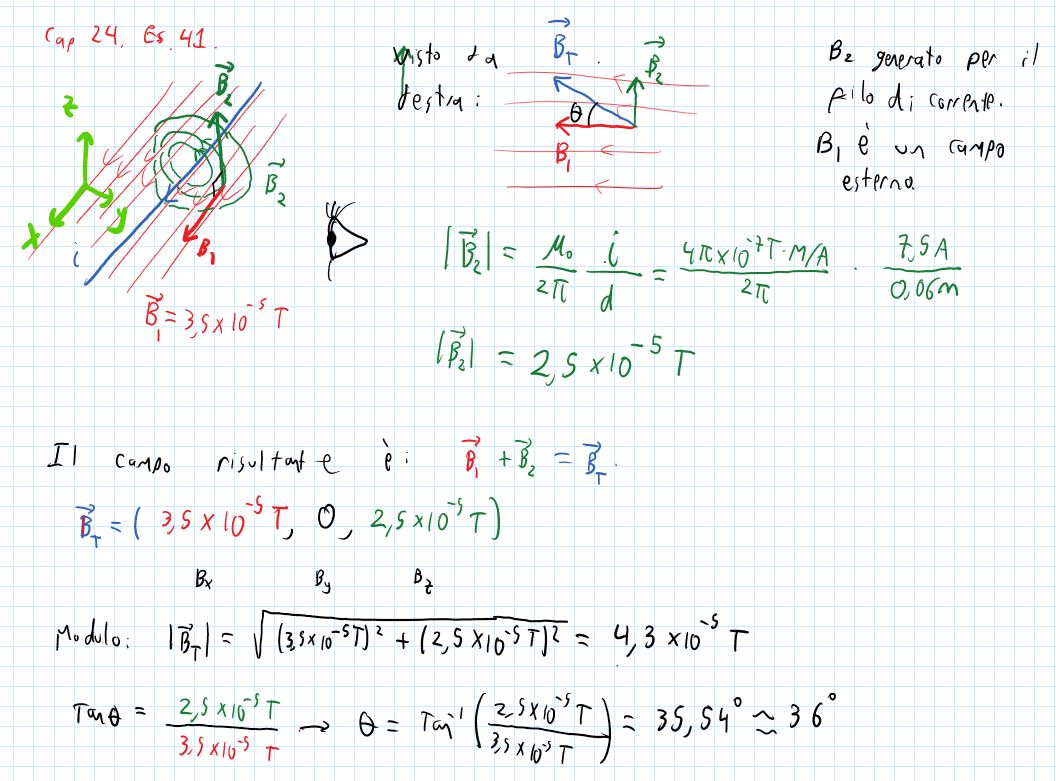 Cap 24. Es. 41.
B⃗₂
z
x
y
i
B₁
B⃗₂
B⃗₁ = 3,5 × 10⁻⁵ T
visto da
destra:
B⃗_T
B⃗₂
θ
B₁
B₂ generato per il
filo di corrente.
B₁ è un campo
esterno.
|B⃗₂| = μ₀/2π i/d = 4π×10⁻⁷T·M/A / 2π · 7,5A / 0,06m
|B⃗₂| = 2,5 × 10⁻⁵ T
Il campo risultante è: B⃗₁ + B⃗₂ = B⃗_T.
B⃗_T = ( 3,5 × 10⁻⁵ T, 0, 2,5 × 10⁻⁵ T)
Bx By Bz
Modulo: |B⃗_T| = √((3,5×10⁻⁵T)² + (2,5×10⁻⁵T)²) = 4,3 × 10⁻⁵ T
Tanθ = 2,5×10⁻⁵ T / 3,5×10⁻⁵ T → θ = Tan⁻¹ (2,5×10⁻⁵ T / 3,5×10⁻⁵ T) = 35,54° ≈ 36°